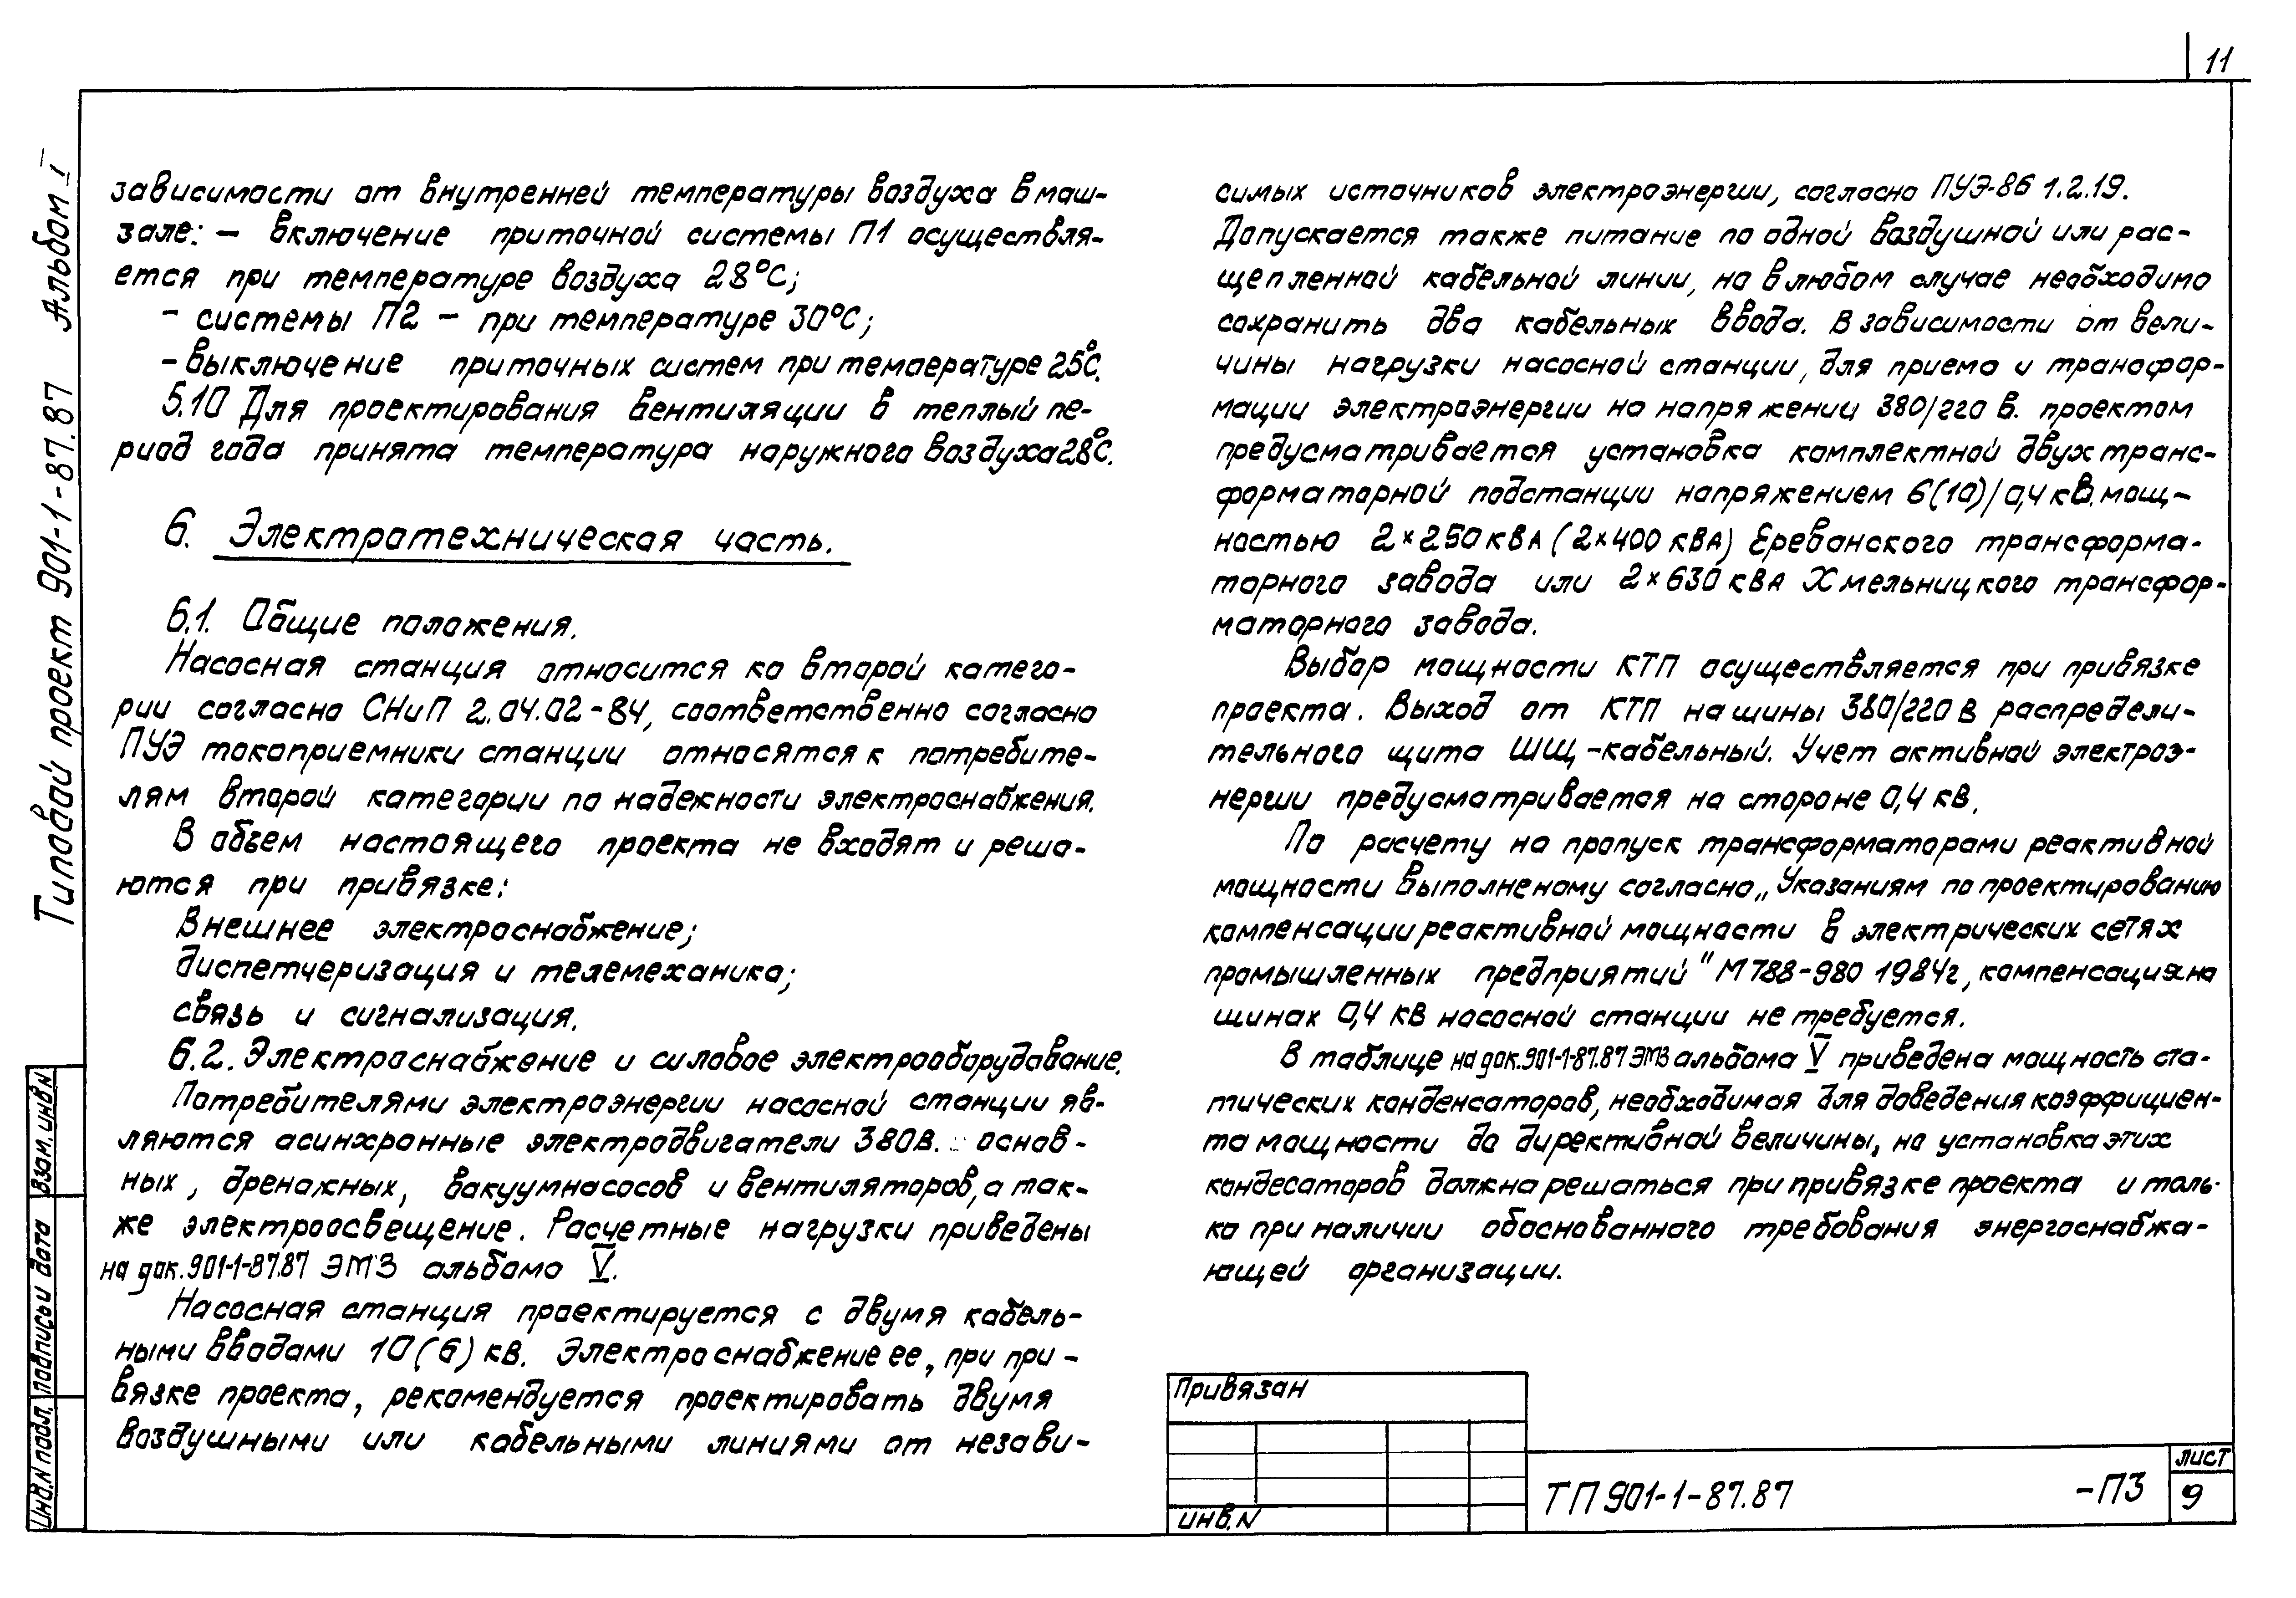 11
Типовой проект 901-1-87.87 Альбом I
зависимости от внутренней температуры воздуха в маш-
зале: - включение приточной системы П1 осуществля-
ется при температуре воздуха 28°С;
- системы П2 - при температуре 30°С;
- выключение приточных систем при температуре 25°С.
5.10 Для проектирования вентиляции в теплый пе-
риод года принята температура наружного воздуха 28°С.
6. Электротехническая часть.
6.1. Общие положения.
Насосная станция относится ко второй катего-
рии согласно СНиП 2.04.02-84, соответственно согласно
ПУЭ токоприемники станции относятся к потребите-
лям второй категории по надежности электроснабжения.
В объем настоящего проекта не входят и реша-
ются при привязке:
Внешнее электроснабжение;
диспетчеризация и телемеханика;
связь и сигнализация.
6.2. Электроснабжение и силовое электрооборудование.
Потребителями электроэнергии насосной станции яв-
ляются асинхронные электродвигатели 380В. основ-
ных, дренажных, вакуумнасосов и вентиляторов, а так-
же электроосвещение. Расчетные нагрузки приведены
на док. 901-1-87.87 ЭМ3 альбома V.
Насосная станция проектируется с двумя кабель-
ными вводами 10(6) кв. Электроснабжение ее, при при-
вязке проекта, рекомендуется проектировать двумя
воздушными или кабельными линиями от незави-
симых источников электроэнергии, согласно ПУЭ-86 1.2.19.
Допускается также питание по одной воздушной или рас-
щепленной кабельной линии, но в любом случае необходимо
сохранить два кабельных ввода. В зависимости от вели-
чины нагрузки насосной станции, для приема и трансфор-
мации электроэнергии на напряжении 380/220 В. проектом
предусматривается установка комплектной двухтранс-
форматорной подстанции напряжением 6(10)/0,4 кВ. мощ-
ностью 2×250 кВА (2×400 кВА) Ереванского трансформа-
торного завода или 2×630 кВА Хмельницкого трансфор-
маторного завода.
Выбор мощности КТП осуществляется при привязке
проекта. Выход от КТП на шины 380/220 В распредели-
тельного щита ШЩ - кабельный. Учет активной электроэ-
нергии предусматривается на стороне 0,4 кВ.
По расчету на пропуск трансформаторами реактивной
мощности выполненому согласно „Указаниям по проектированию
компенсации реактивной мощности в электрических сетях
промышленных предприятий" М788-980 1984г, компенсация на
шинах 0,4 кВ насосной станции не требуется.
В таблице на док. 901-1-87.87 ЭМ3 альбома V приведена мощность ста-
тических конденсаторов, необходимая для доведения коэффициен-
та мощности до директивной величины, но установка этих
кондесаторов должна решаться при привязке проекта и толь-
ко при наличии обоснованного требования энергоснабжа-
ющей организации.
Взам. инв N
Подпись и дата
Инв. N подл.
Привязан
инв. N
ТП 901-1-87.87 -ПЗ
лист
9